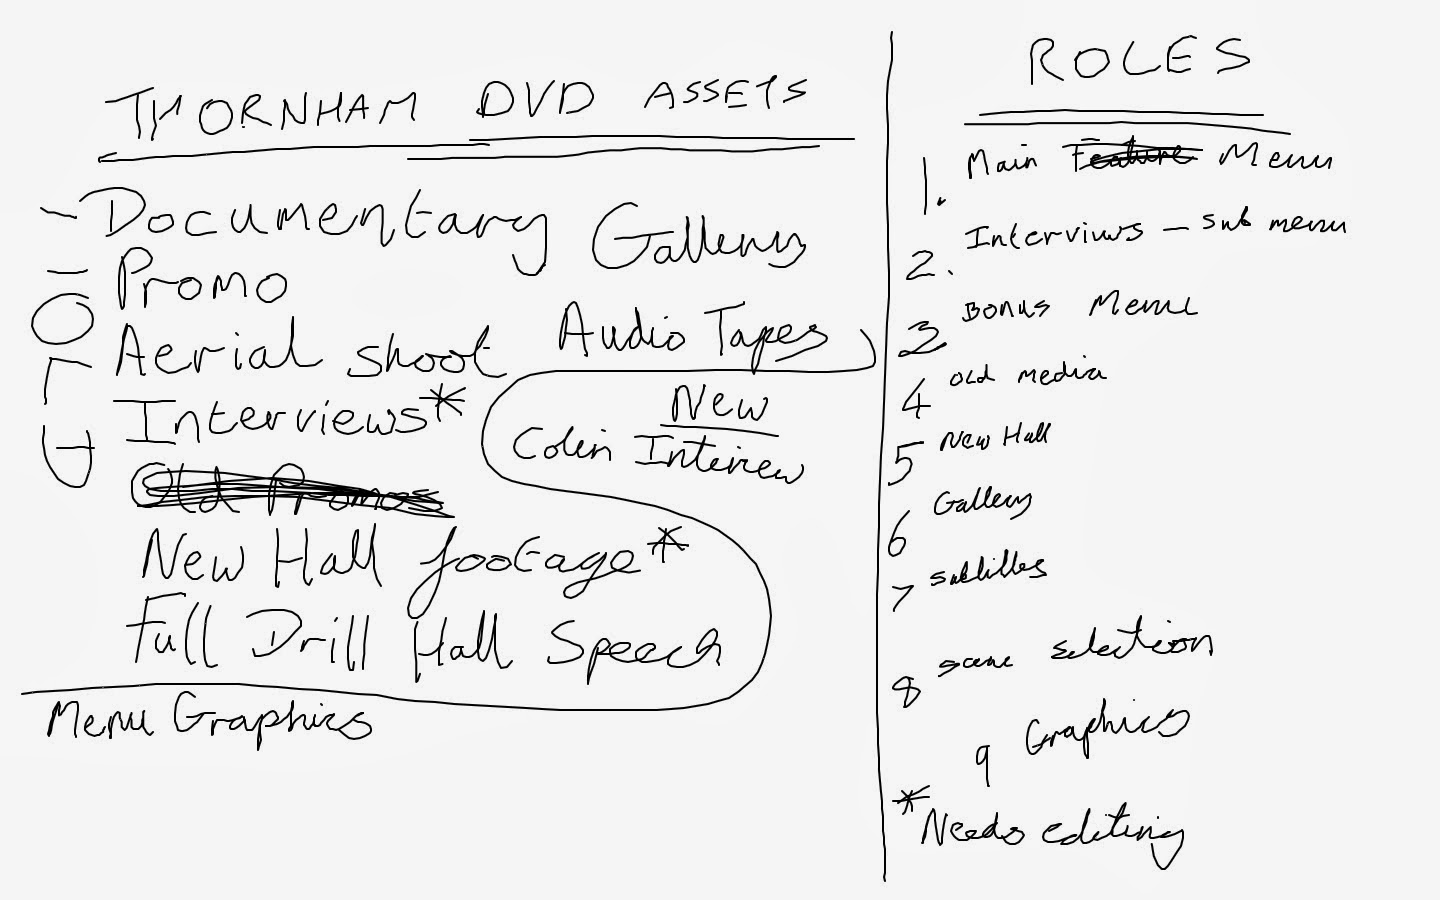 THORNHAM DVD ASSETS
Documentary
Promo
Aerial shoot
Interviews*
Old Promos
New Hall footage*
Full Drill Hall Speech
Gallery
Audio Tapes
New
Colin Interview
Menu Graphics
ROLES
1. Main Feature Menu
2. Interviews – sub menu
3 Bonus Menu
4 old media
5 New Hall
6 Gallery
7 subtitles
8 scene selection
9 Graphics
*Needs editing